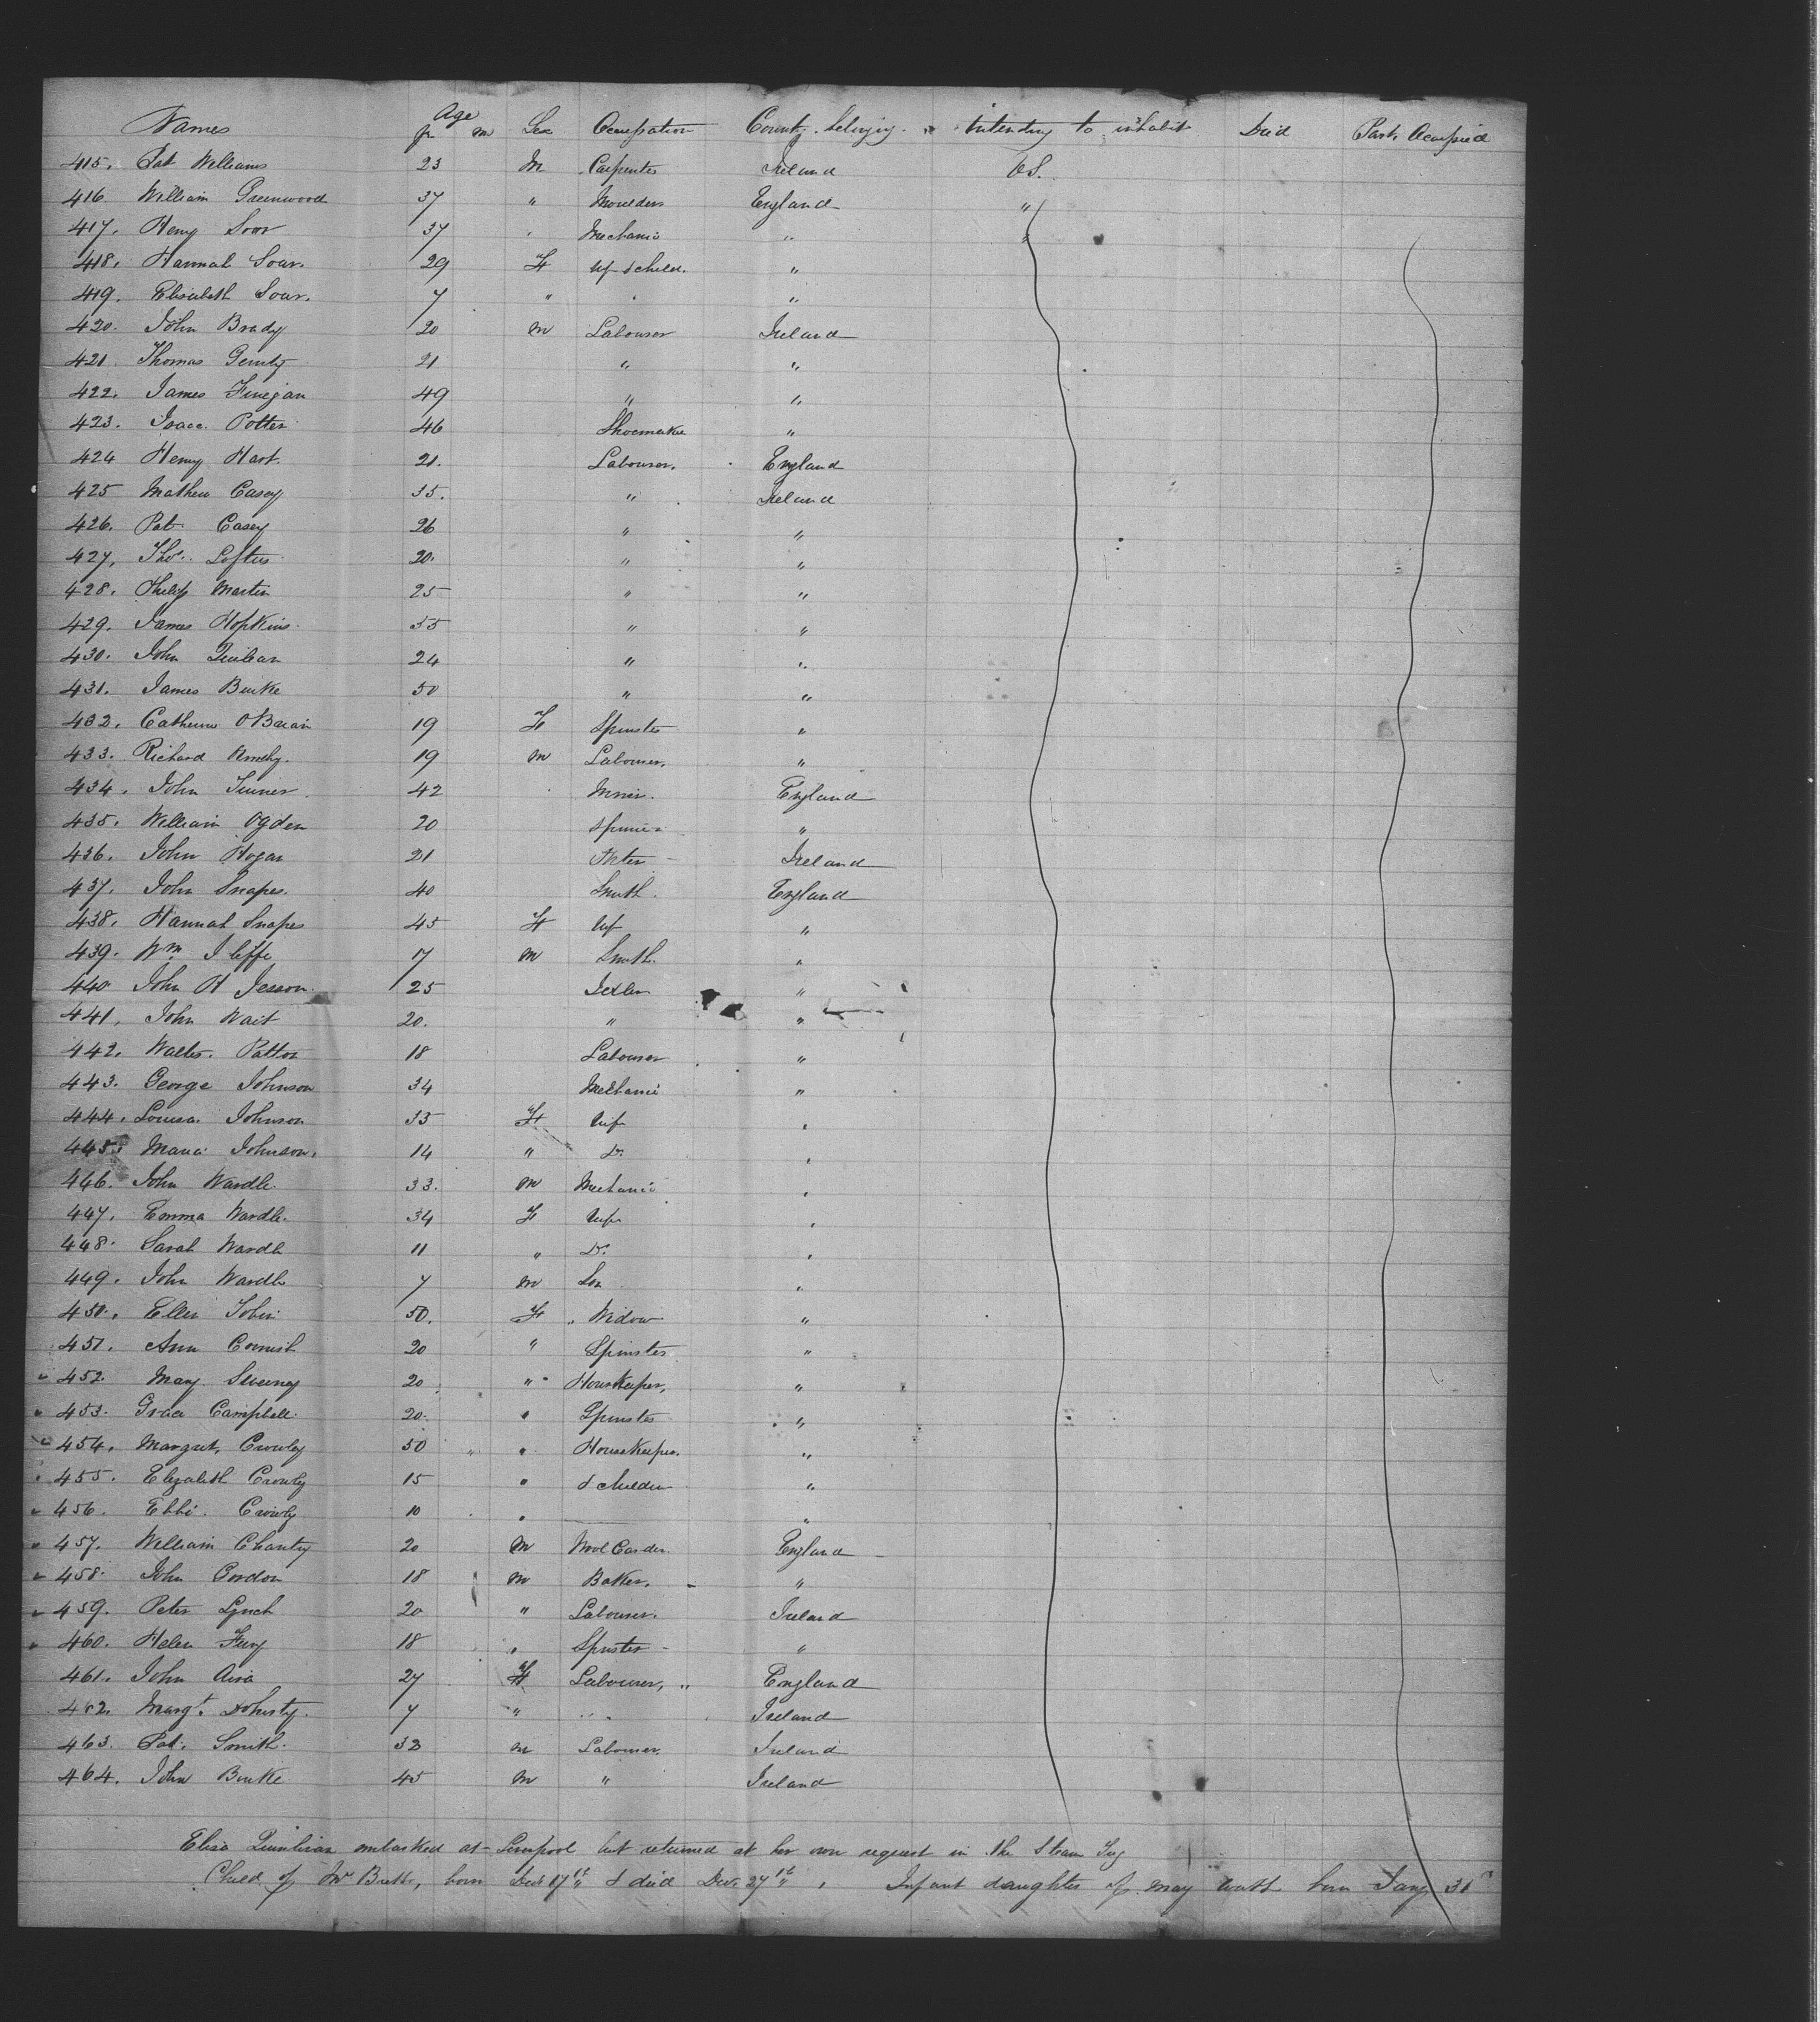 Names Age yr m Sex Occupation County belonging intending to inhabit Died Part Occupied
415. Pat Williams 23 M Carpenter Ireland US.
416. William Greenwood 37 " Moulder England "
417. Henry Soar 37 " Mechanic " "
418. Hannah Soar. 29 F wf & child. "
419. Elisabeth Soar. 7 " "
420. John Brady 20 M Labourer Ireland
421. Thomas 21 " "
422. James Finegan 49 " "
423. Isaac Potter 46 Shoemaker "
424 Henry Hart. 21. Labourer. England
425 Mathew Casey 35. " Ireland
426. Pat Casey 26 " "
427. Thos. Loftus 20. " "
428. Philip Martin 25 " "
429. James Hopkins 55 " "
430. John Quilan 24 " "
431. James Burke 50 " "
432. Catherine OBrian 19 F Spinster "
433. Richard 19 M Labourer. "
434. John 42 England
435. William Ogden 20 Spinner "
436. John Hogan 21 Ireland
437. John Snapes. 40 Smith. England
438. Hannah Snapes 45 F Wf "
439. Wm Iliffe 17 M Smith. "
440 John H Jesson 25 "
441. John Wait 20. " "
442. Walter Patton 18 Labourer "
443. George Johnson 34 Mechanic "
444. Louisa Johnson 35 F Wife "
445 Maria Johnson. 14 " D. "
446. John Wardle 33. M Mechanic "
447. Emma Wardle. 34 F Wife "
448. Sarah Wardle 11 " D. "
449. John Wardle 7 M Son "
450. Ellen Tobin 50. F Widow "
451. Ann Cornish 20 " Spinster "
452 Mary Sweeney 20 " Housekeeper, "
453. Grace Campbell. 20. " Spinster "
454. Margret. Crowley 50 " Housekeeper. "
455. Elizabeth Crowly 15 " & children "
456. Crowly 10 " "
457. William Charity 20 M Wool Carder England
458. John Gordon 18 M Baker. "
459. Peter Lynch 20 " Labourer. Ireland
460. Helen Fury 18 " Spinster "
461. John 27 F Labourer, England
462. Margt. Doherty. 7 " " Ireland
463. Pat. Smith. 32 M Labourer. Ireland
464. John Burke 45 M " Ireland
Eliza Quinlivan embarked at Liverpool but returned at her own request in the Steam Tug
Child of Mrs Brett, born Decr 17th & died Decr 27th, Infant daughter of Mary Watt born Jany 31st